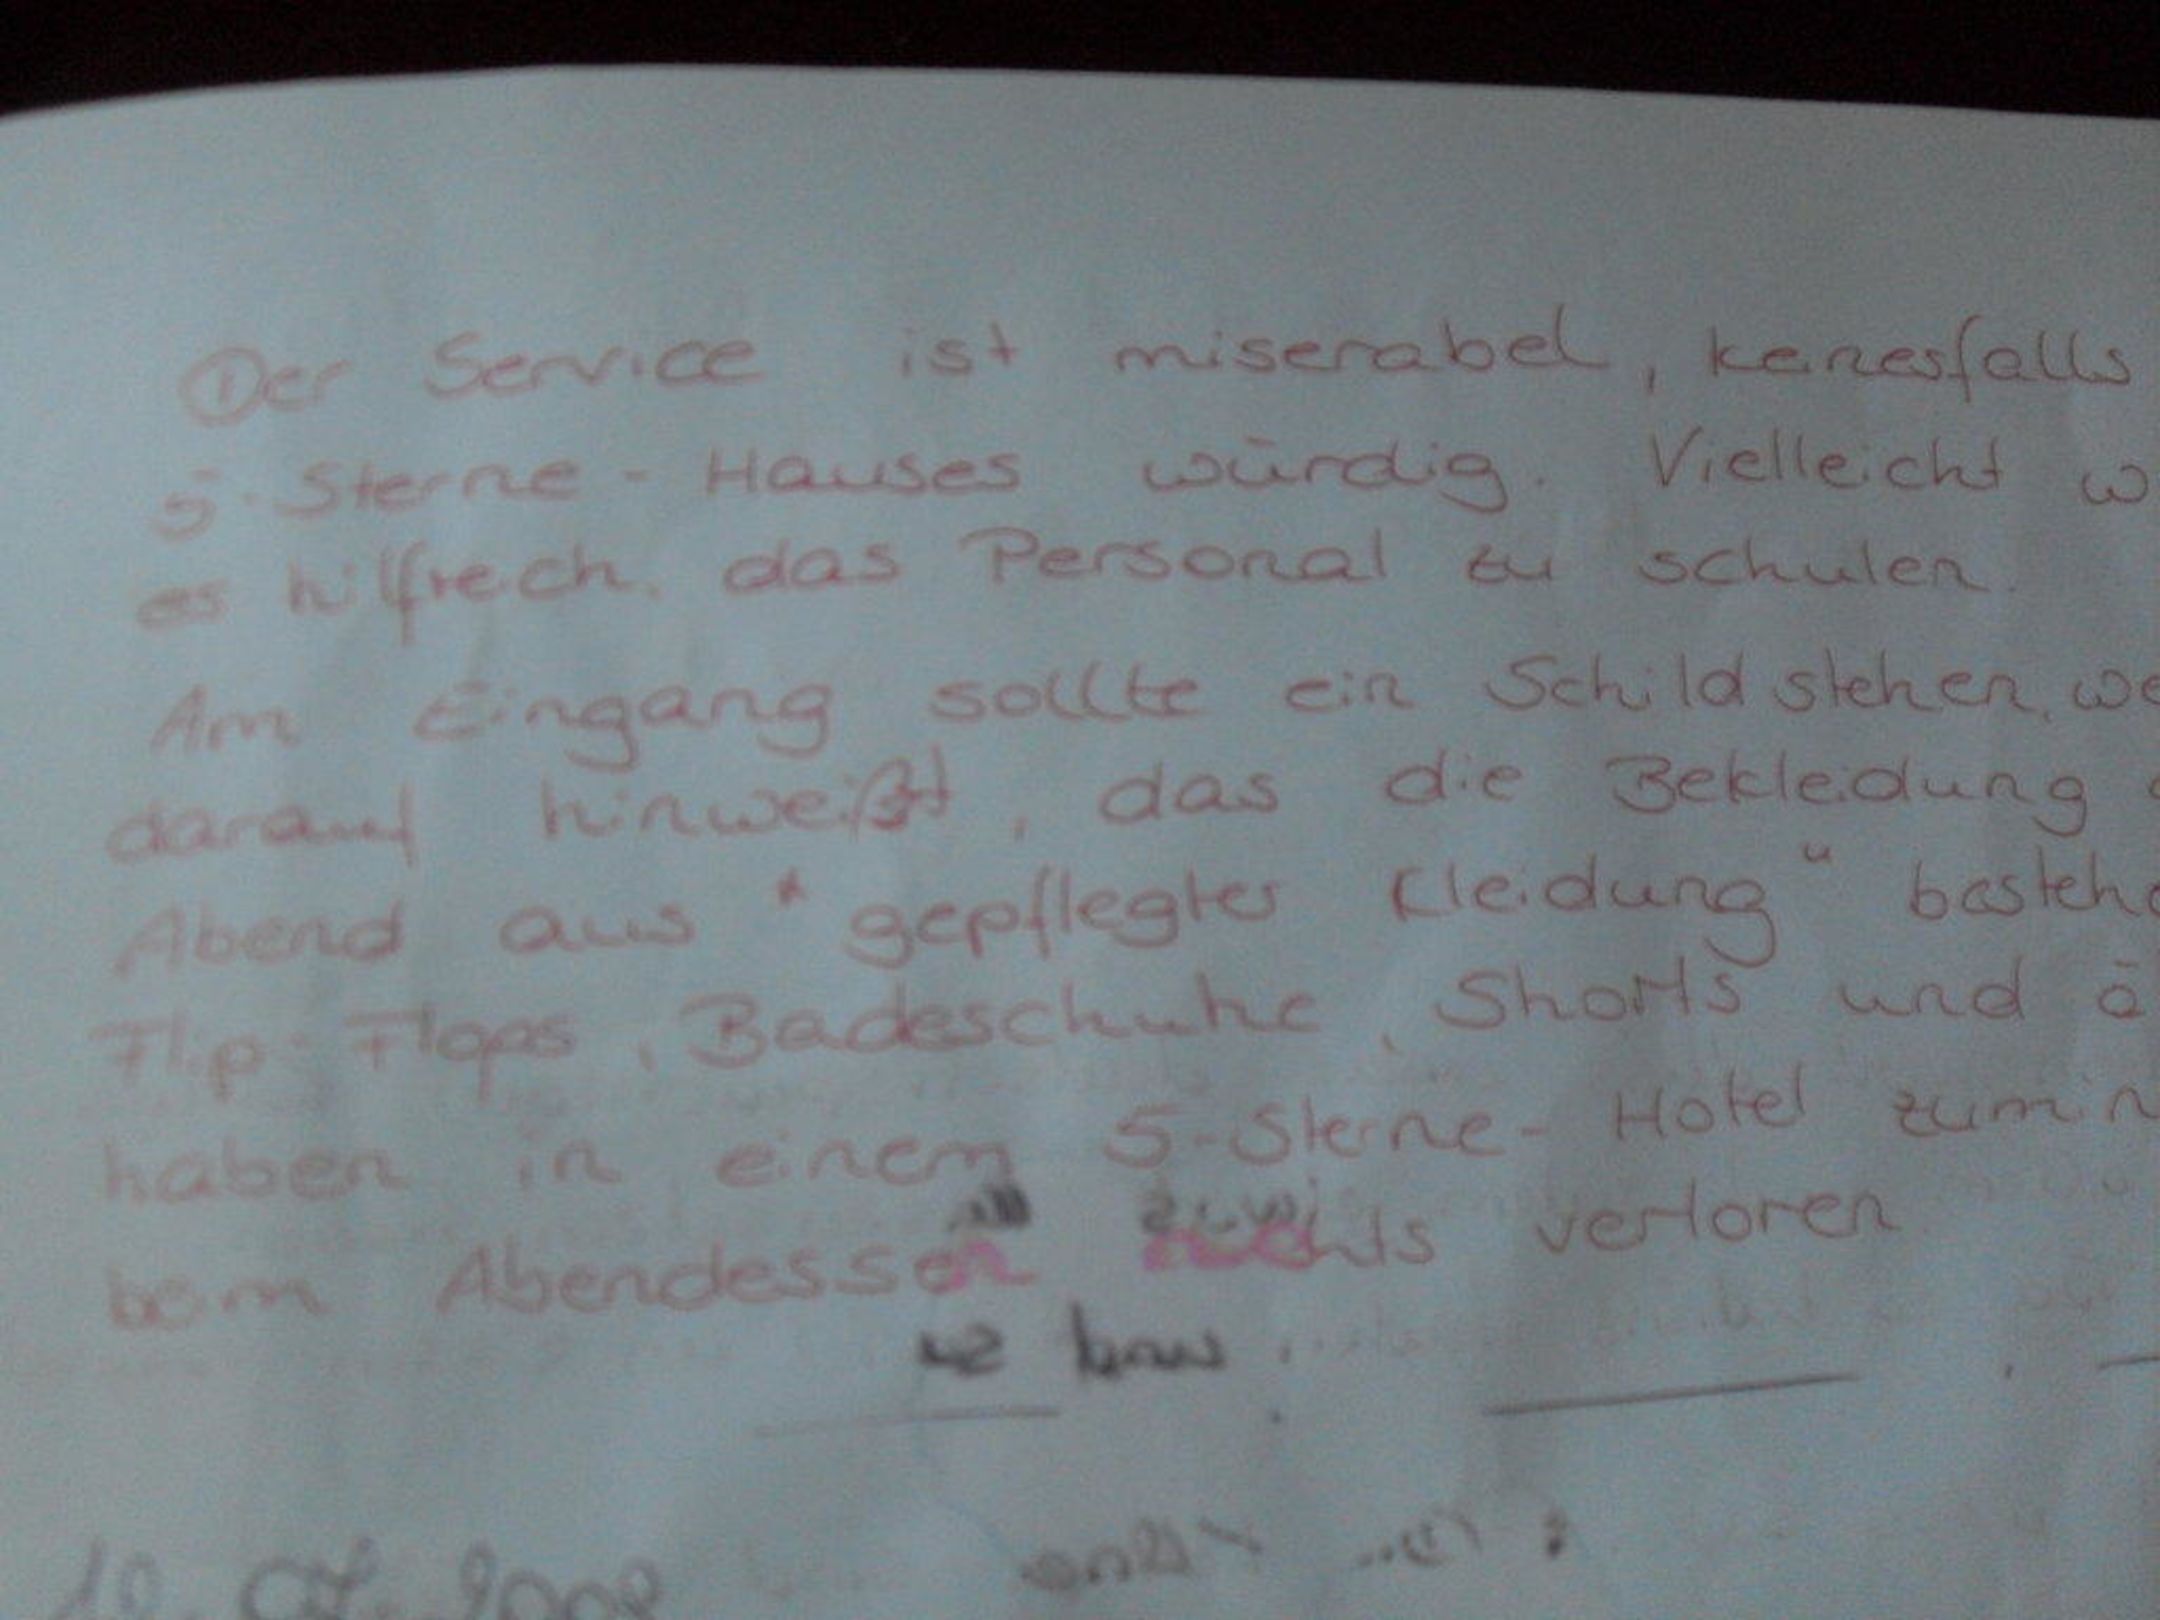 ① Der Service ist miserabel, keinesfalls
5-Sterne-Hauses würdig. Vielleicht w
es hilfreich, das Personal zu schulen.
Am Eingang sollte ein Schild stehen, we
darauf hinweißt, das die Bekleidung
Abend aus "gepflegter Kleidung" besteh
Flip-Flops, Badeschuhe, Shorts und ä
haben in einem 5-Sterne-Hotel zumin
beim Abendessen nichts verloren